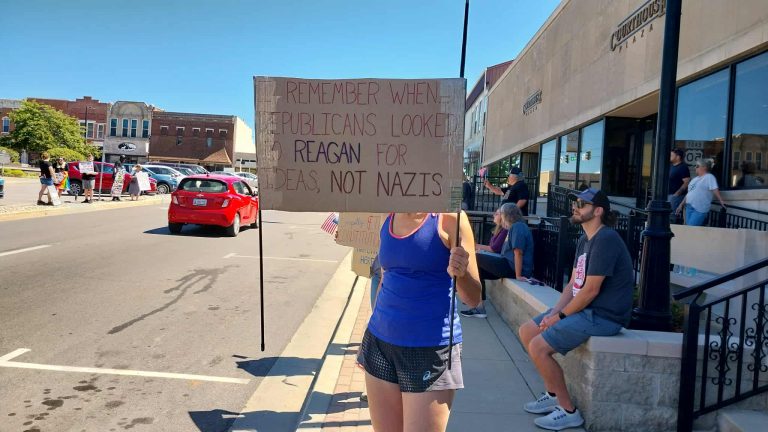 REMEMBER WHEN
REPUBLICANS LOOKED
TO REAGAN FOR
IDEAS, NOT NAZIS
COURTHOUSE
PLAZA
COURTHOUSE
PLAZA